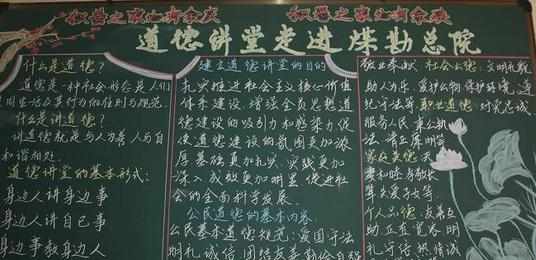 积善之家必有余庆 积恶之家必有余殃
道德讲堂走进煤勘总院
什么是道德?
道德是一种社会形态是人们
共同生活及其行为的准则与规范.
什么是讲道德?
讲道德就是与人为善 人与自
和谐相处.
道德讲堂的基本形式:
身边人讲身边事
身边人讲自己事
身边事教身边人
建立道德讲堂的目的
扎实推进社会主义核心价值
体系建设,增强全员思想道
德建设的吸引力和感染力促
使道德建设的氛围更加浓
厚基础更加扎实、实践更加
深入成效更加明显促进社
会的全面科学发展.
公民道德的基本内容:
公民基本道德规范:爱国守法
明礼诚信 团结友善勤俭自强
敬业奉献.社会公德:文明礼貌
助人为乐、爱护公物 保护环境、遵
纪守法等.职业道德:对党忠诚
服务人民 秉公执
法 清正廉明
家庭美德:
孝和睦
等夫爱子女等.
个人品德:友善互
助正直宽容 明
礼守信 热情诚